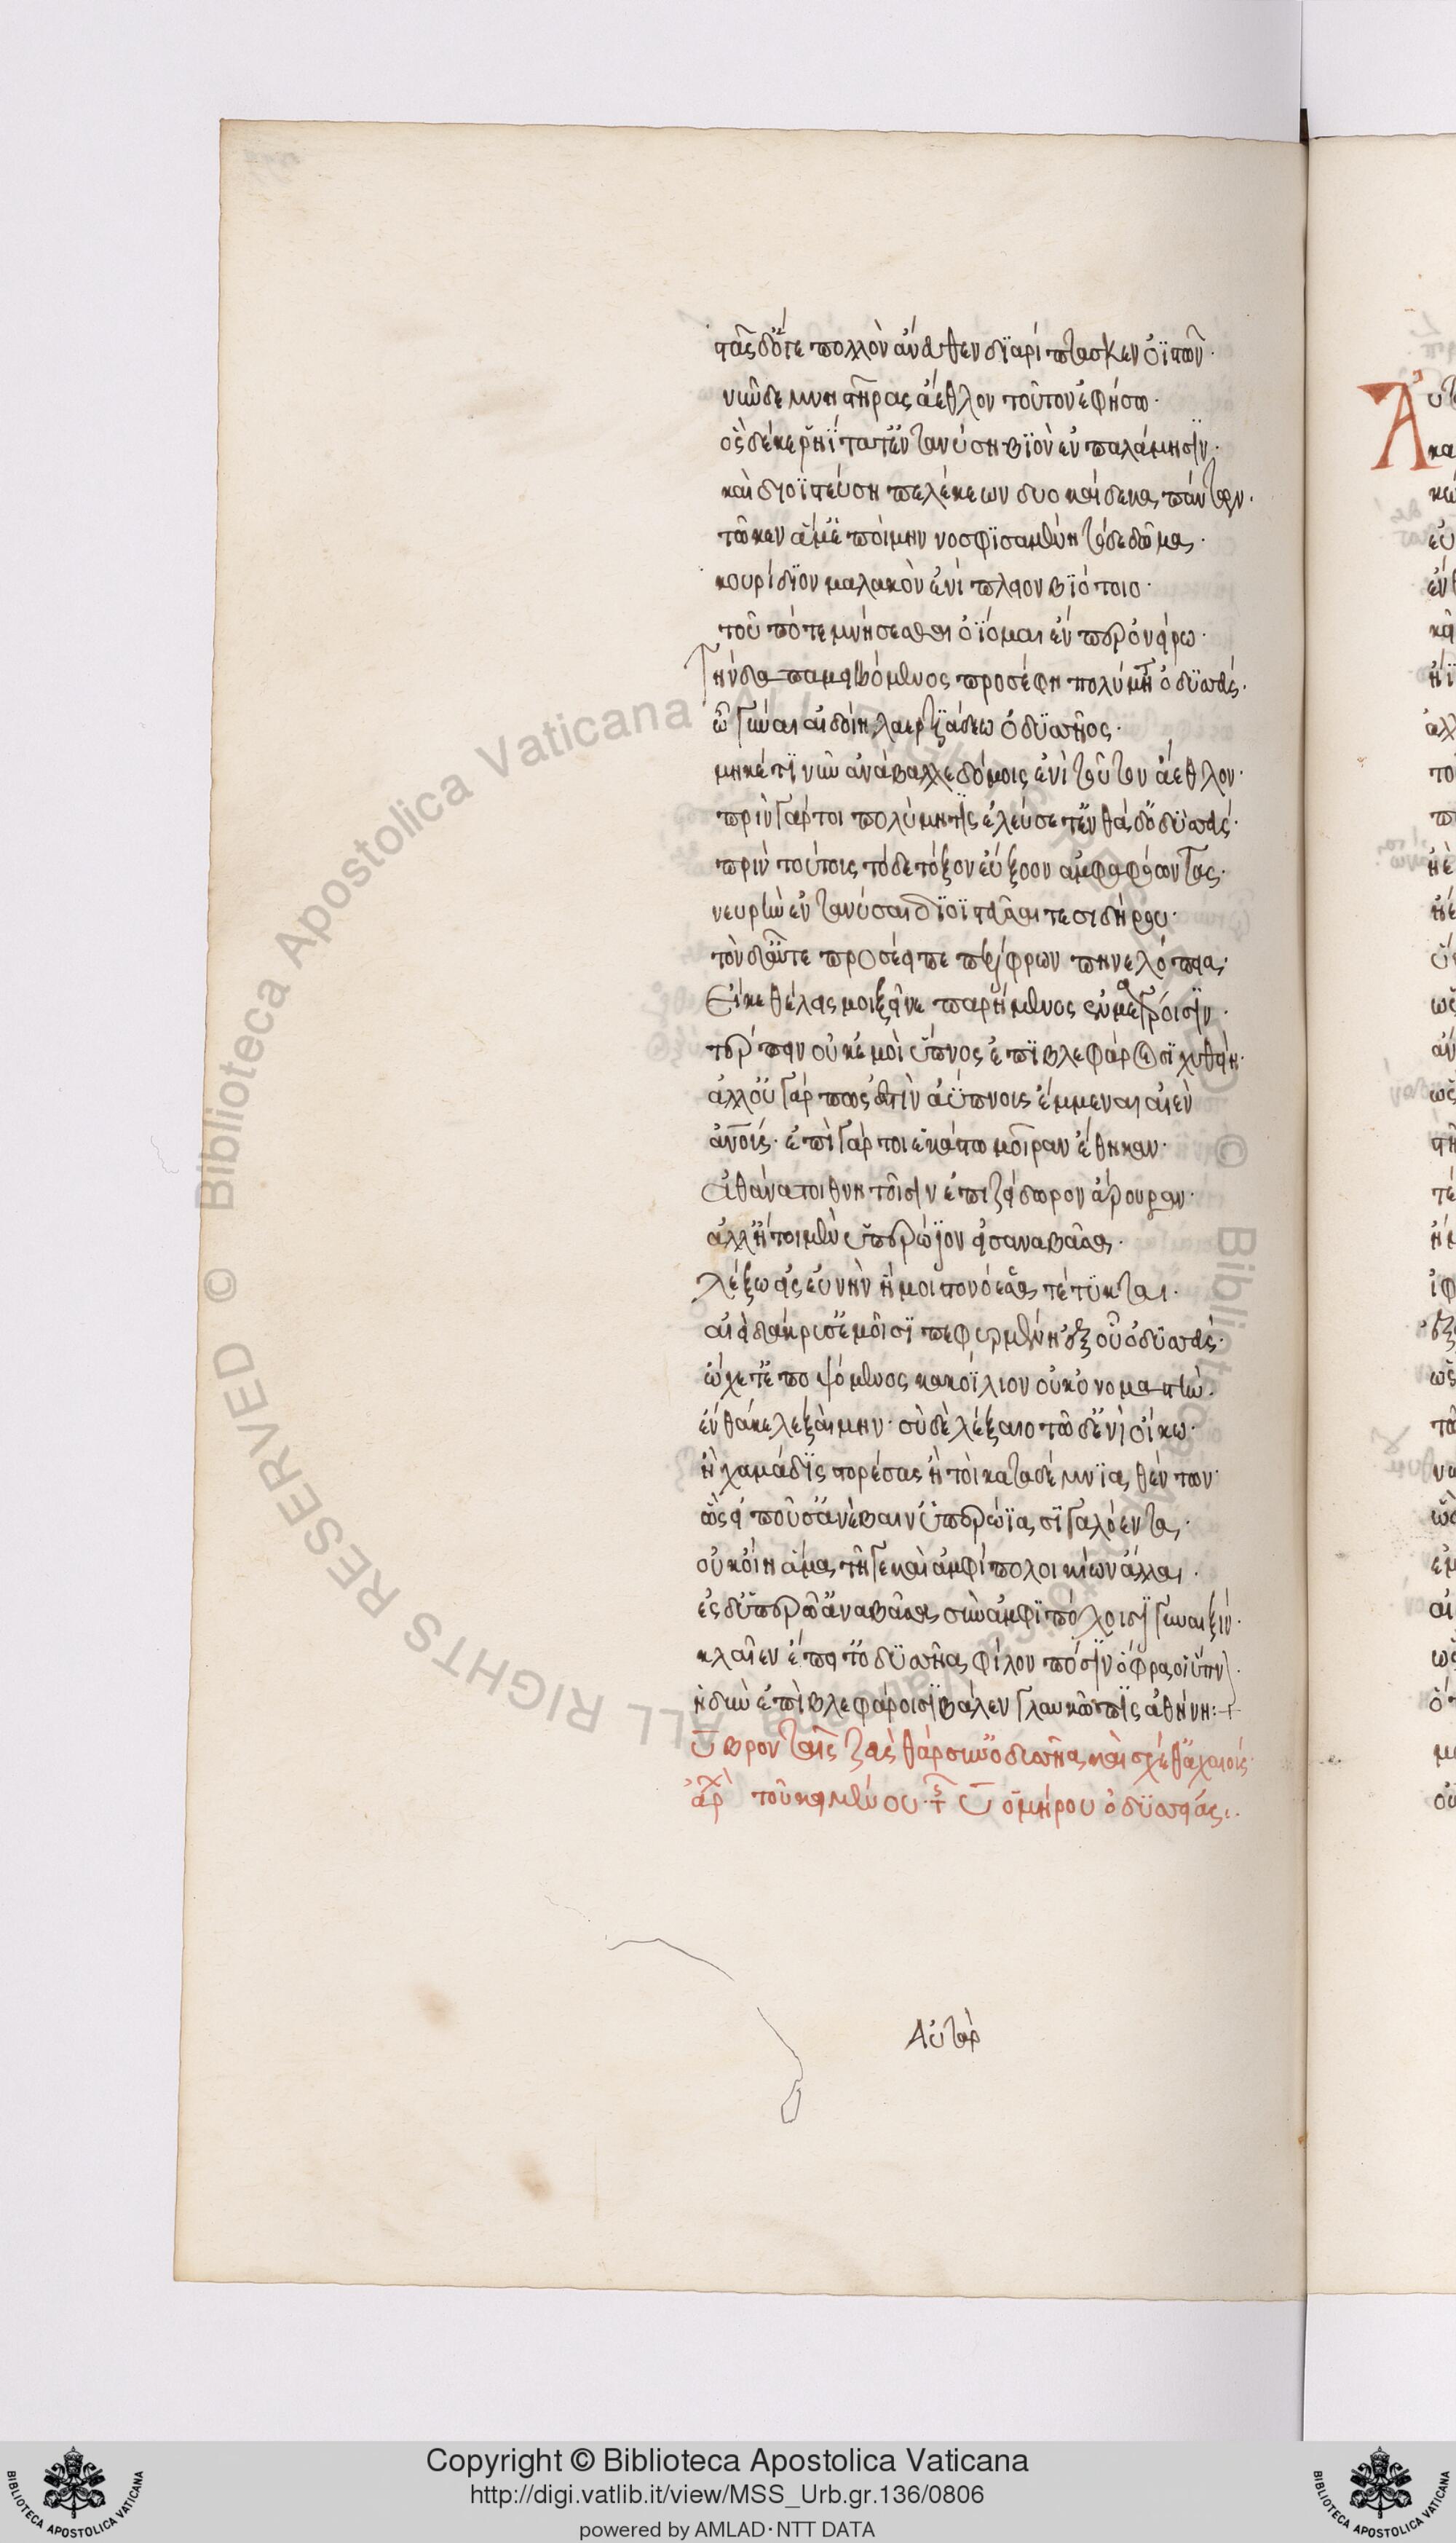 στὰς δ' ὅτε πολλὸν ἄνευθεν διαρίπτασκεν ὀϊστόν·
νῦν δὲ μνηστῆρας ἄεθλον τοῦτον ἐφήσω·
ὃς δέ κε ῥηΐτατ' ἐντανύση βιὸν ἐν παλάμησιν·
καὶ διοϊστεύση πελέκεων δυοκαίδεκα πάντων·
τῶ κεν ἅμ' ἑσποίμην νοσφισαμένη τόδε δῶμα·
κουρίδιον μάλα καλὸν ἐνίπλειον βιότοιο·
τοῦ ποτε μνήσεσθαι ὀΐομαι ἔν περ ὀνείρω·
Τὴν δ' ἀπαμειβόμενος προσέφη πολύμητις ὀδυσσεύς·
ὦ γύναι αἰδοίη λαερτιάδεω ὀδυσῆος·
μηκέτι νῦν ἀνάβαλλε δόμοις ἐνὶ τοῦτον ἄεθλον·
πρὶν γάρ τοι πολύμητις ἐλεύσετ' ἐνθάδ' ὀδυσσεύς·
πρὶν τούτοις τόδε τόξον ἐΰξοον ἀμφαφόωντας·
νευρὴν ἐντανύσαι διοϊστεῦσαί τε σιδήρου·
τὸν δ' αὖτε προσέειπε περίφρων πηνελόπεια·
Εἴ κ' ἐθέλεις μοι ξεῖνε παρήμενος ἐν μεγάροισιν·
τέρπειν οὔ κέ μοι ὕπνος ἐπὶ βλεφάροισι χυθείη·
ἀλλ' οὐ γάρ πως ἐστὶν ἀΰπνοις ἔμμεναι αἰεὶ
ἀνοις· ἐπὶ γάρ τοι ἑκάστω μοῖραν ἔθηκαν·
ἀθάνατοι θνητοῖσιν ἐπὶ ζείδωρον ἄρουραν·
ἀλλ' ἤτοι μὲν ὑπερώϊον εἰσαναβᾶσα·
λέξω εἰς εὐνὴν ἥ μοι στονόεσσα τέτυκται·
αἰεὶ δάκρυσ' ἐμοῖσι πεφυρμένη ἐξ οὗ ὀδυσσεύς·
ᾤχετ' ἐποψόμενος κακοΐλιον οὐκ ὀνομαστήν·
ἔνθά κε λεξαίμην· σὺ δὲ λέξαιο τῶδ' ἐνὶ οἴκω·
ἢ χαμάδις στορέσας ἤ τοι κατὰ δέμνια θέντων·
ὣς εἰποῦσ' ἀνέβαιν' ὑπερώϊα σιγαλόεντα·
οὐκ οἴη ἅμα τῆ γε καὶ ἀμφίπολοι κίον ἄλλαι·
ἐς δ' ὑπερῶ' ἀναβᾶσα σὺν ἀμφιπόλοισι γυναιξίν·
κλαῖεν ἔπειτ' ὀδυσῆα φίλον πόσιν ὄφρα οἱ ὕπν·
ἡδὺν ἐπὶ βλεφάροισι βάλεν γλαυκῶπις ἀθήνη:+
ἀρχ τοῦ κειμένου τ ξ τ ὁμήρου ὀδυσσείας:
Αὐτὰρ
Copyright © Biblioteca Apostolica Vaticana
http://digi.vatlib.it/view/MSS_Urb.gr.136/0806
powered by AMLAD·NTT DATA